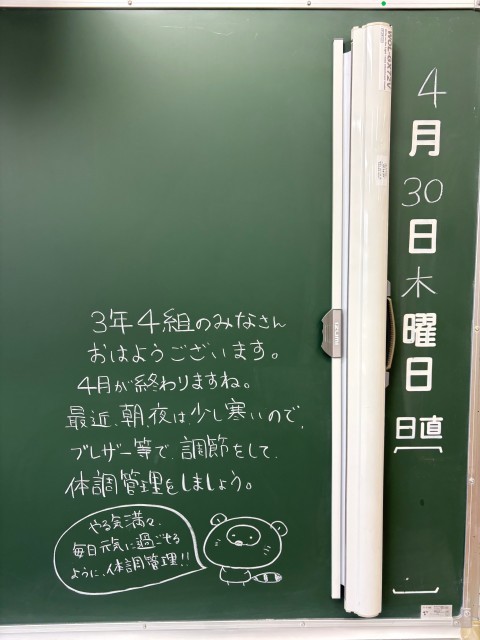 4月30日木曜日
日直
3年4組のみなさん
おはようございます。
4月が終わりますね。
最近、朝、夜は、少し寒いので、
ブレザー等で、調節をして、
体調管理をしましょう。
やる気満々、
毎日元気に過ごせる
ように、体調管理!!